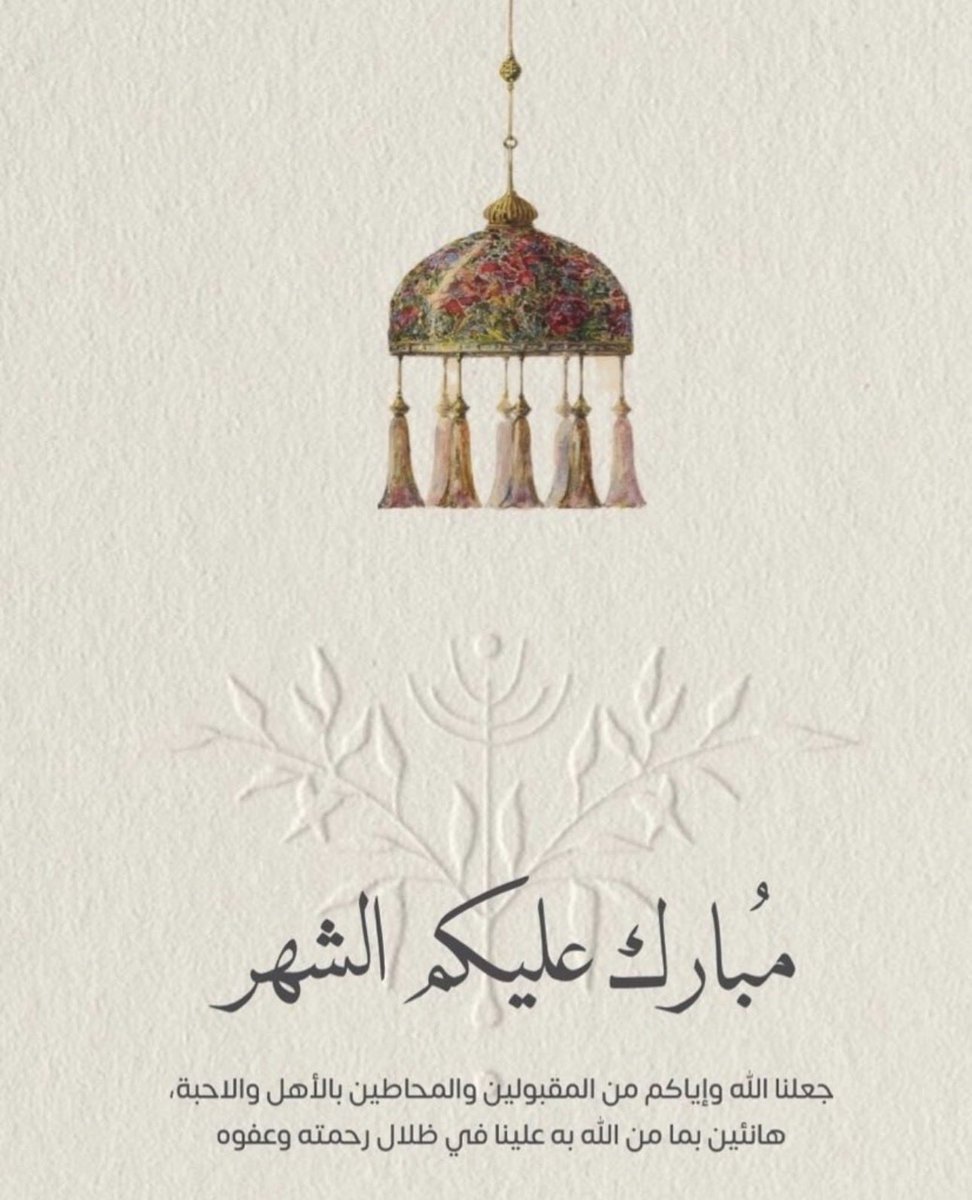 مُبارك عليكم الشهر
جعلنا الله وإياكم من المقبولين والمحاطين بالأهل والاحبة،
هانئين بما من الله به علينا في ظلال رحمته وعفوه